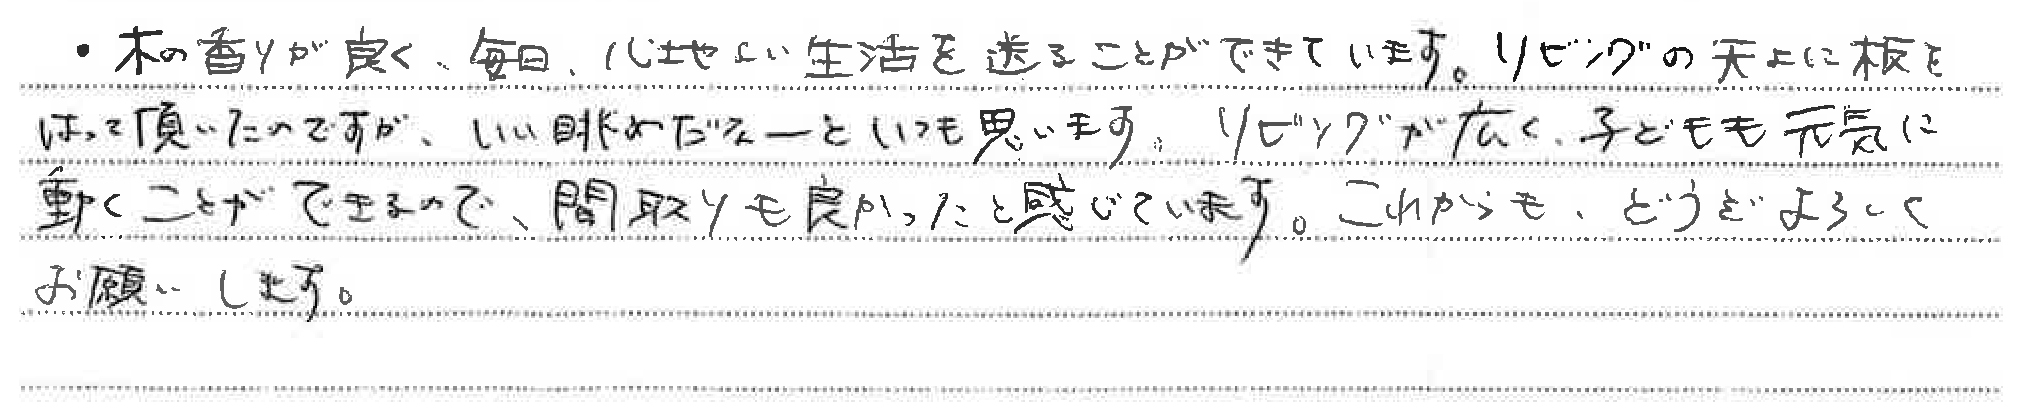 ・木の香りが良く、毎日、心地よい生活を送ることができています。リビングの天上に板を
はって頂いたのですが、いい眺めだえーといつも思います。リビングが広く、子どもも元気に
動くことができるので、間取りも良かったと感じています。これからも、どうぞよろしく
お願いします。